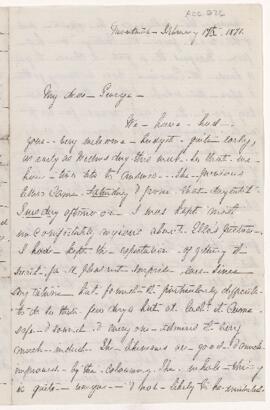 ACC 276
February 17th. 1871.
My dear George
We have had
your very welcome budget quite early,
as early as Wednesday this
have two to answer. The previous
letters came Saturday & from that day until
Tuesday afternoon I was kept most
uncomfortably about Ella's picture.
I had kept the expectation of getting it
secret for a pleasant surprise ever since
but found it particularly difficult
to do so these few days but at last it came
safe & sound & every one admired it very
much indeed. The likeness is good & much
improved by the colouring. The whole thing
is quite unique & not likely to be imitated